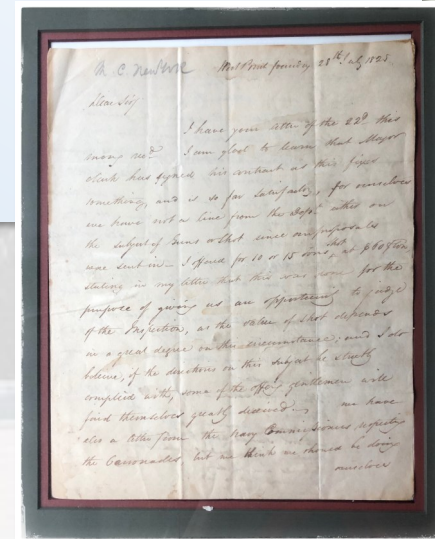 M. C. Newbold
West Point foundry 28th July 1825
Dear Sir
I have your letter of the 22d this
morng recd I am glad to learn that Major
Clark has signed his contract as this fixes
something, and is so far satisfactory, for ourselves
we have not a line from the Dept either on
the subject of Guns or Shot since our proposals
were sent in. I offered for 10 or 15 tons shot at $60 pton
stating in my letter that this was for the
purpose of giving us an opportunity to judge
of the Inspection, as the value of shot depends
in a great degree on this circumstance; and I do
believe, if the directions on this subject be strictly
complied with, some of the offerg gentlemen will
find themselves greatly deceived, we have
also a letter from the Navy Commissioners respectg
the Carronades, but we think we should be doing
ourselves